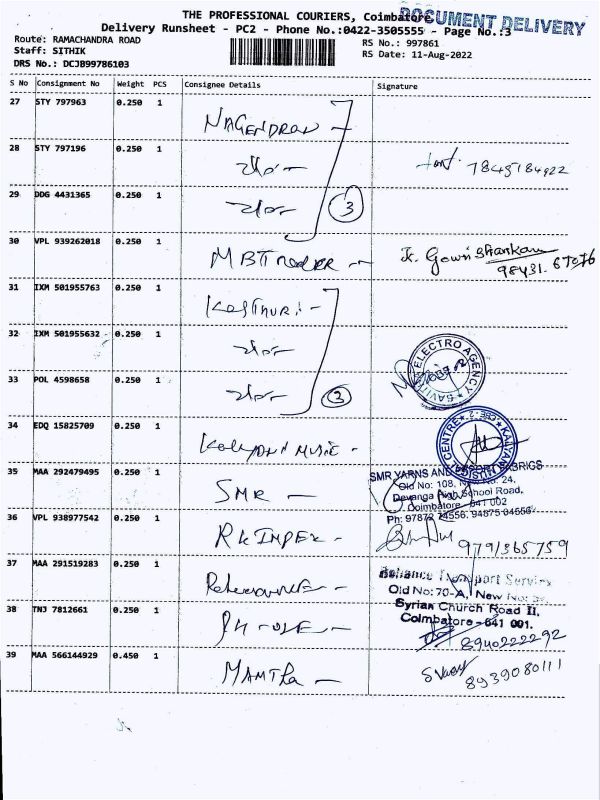 THE PROFESSIONAL COURIERS, Coimbatore
DOCUMENT DELIVERY
Delivery Runsheet - PC2 - Phone No.:0422-3505555 - Page No.:3
Route: RAMACHANDRA ROAD
RS No.: 997861
Staff: SITHIK
RS Date: 11-Aug-2022
DRS No.: DCJB99786103
S No Consignment No Weight PCS Consignee Details Signature
27 STY 797963 0.250 1
NAGENDRAN
28 STY 797196 0.250 1
7845184922
29 DDG 4431365 0.250 1
3
30 VPL 939262018 0.250 1
K. Gowri Shankar
98431.67076
31 IXM 501955763 0.250 1
KASTHURI
32 IXM 501955632 0.250 1
33 POL 4598658 0.250 1
3
ELECTRO AGENCY
34 EDQ 15825709 0.250 1
KALYANI MUSIC
KALYANI MUSIC CENTRE
35 MAA 292479495 0.250 1
SMR
SMR YARNS AND EXPORT FABRICS
Old No: 108, No. 24,
Devanga High School Road,
Coimbatore - 641 002
Ph: 97872 74556, 94875 04556
36 VPL 938977542 0.250 1
RK IMPEX
9791365759
37 MAA 291519283 0.250 1
Reliance Transport Service
Old No: 70-A, New No:
Syrian Church Road II,
Coimbatore - 641 001.
38 TNJ 7812661 0.250 1
8940222292
39 MAA 566144929 0.450 1
MAMTHA
8939080111